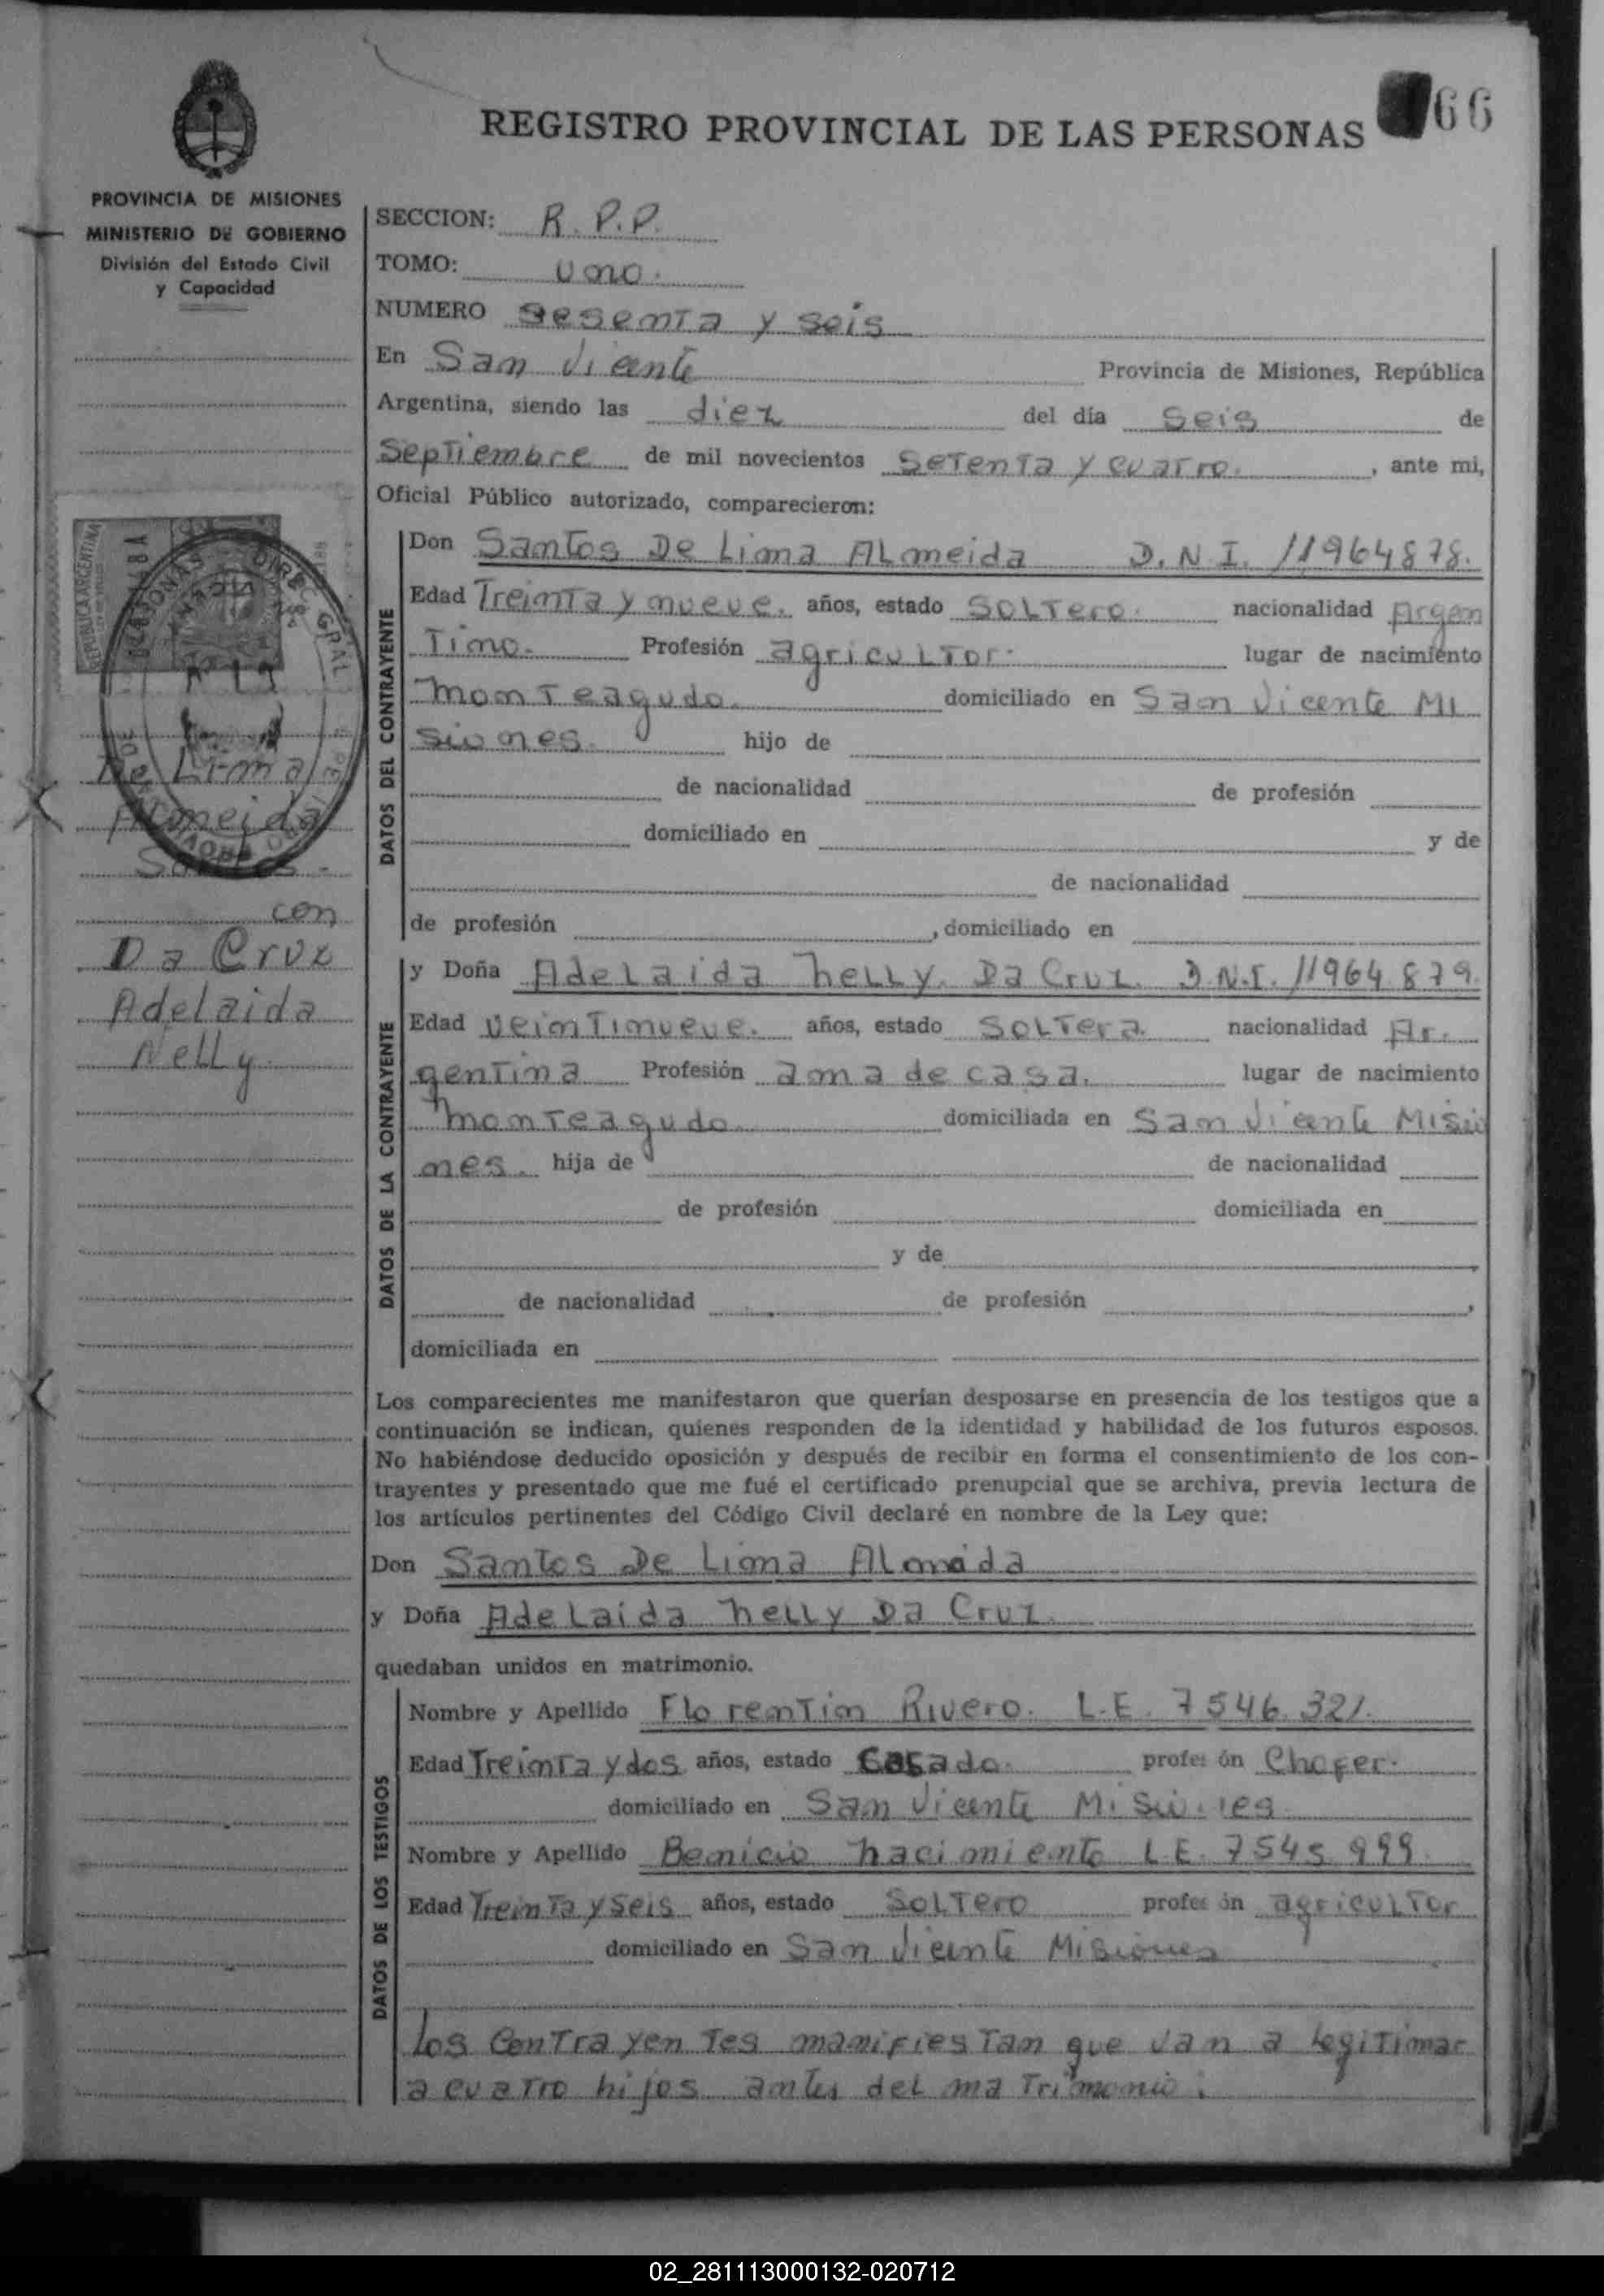 REGISTRO PROVINCIAL DE LAS PERSONAS 66
PROVINCIA DE MISIONES
MINISTERIO DE GOBIERNO
División del Estado Civil
y Capacidad
SECCION: R. P. P.
TOMO: uno.
NUMERO sesenta y seis
En San Vicente Provincia de Misiones, República
Argentina, siendo las diez del día seis de
septiembre de mil novecientos setenta y cuatro. , ante mi,
Oficial Público autorizado, comparecieron:
REPUBLICA ARGENTINA
De Lima
Almeida
Santos -
con
Da Cruz
Adelaida
Nelly.
DATOS DEL CONTRAYENTE
Don Santos De Lima Almeida D. N. I. 11964878.
Edad Treinta y nueve. años, estado soltero. nacionalidad Argen
tino. Profesión agricultor. lugar de nacimiento
Monteagudo. domiciliado en San Vicente Mi
siones. hijo de
de nacionalidad de profesión
domiciliado en y de
de nacionalidad
de profesión , domiciliado en
DATOS DE LA CONTRAYENTE
y Doña Adelaida Nelly. Da Cruz. D.N.I. 11964.879.
Edad veintinueve. años, estado soltera. nacionalidad Ar.
gentina Profesión ama de casa. lugar de nacimiento
Monteagudo domiciliada en San Vicente Misio
nes. hija de de nacionalidad
de profesión domiciliada en
y de ,
de nacionalidad de profesión ,
domiciliada en
Los comparecientes me manifestaron que querían desposarse en presencia de los testigos que a
continuación se indican, quienes responden de la identidad y habilidad de los futuros esposos.
No habiéndose deducido oposición y después de recibir en forma el consentimiento de los con-
trayentes y presentado que me fué el certificado prenupcial que se archiva, previa lectura de
los artículos pertinentes del Código Civil declaré en nombre de la Ley que:
Don Santos De Lima Almeida
y Doña Adelaida Nelly Da Cruz.
quedaban unidos en matrimonio.
DATOS DE LOS TESTIGOS
Nombre y Apellido Florentin Rivero. L.E. 7546.321.
Edad Treinta y dos años, estado Casado. profesión Chofer.
domiciliado en San Vicente Misiones.
Nombre y Apellido Benicio Nacimiento L.E. 7545.999.
Edad Treinta y seis años, estado soltero profesión agricultor
domiciliado en San Vicente Misiones
Los contrayentes manifiestan que van a legitimar
a cuatro hijos antes del matrimonio.
02_281113000132-020712